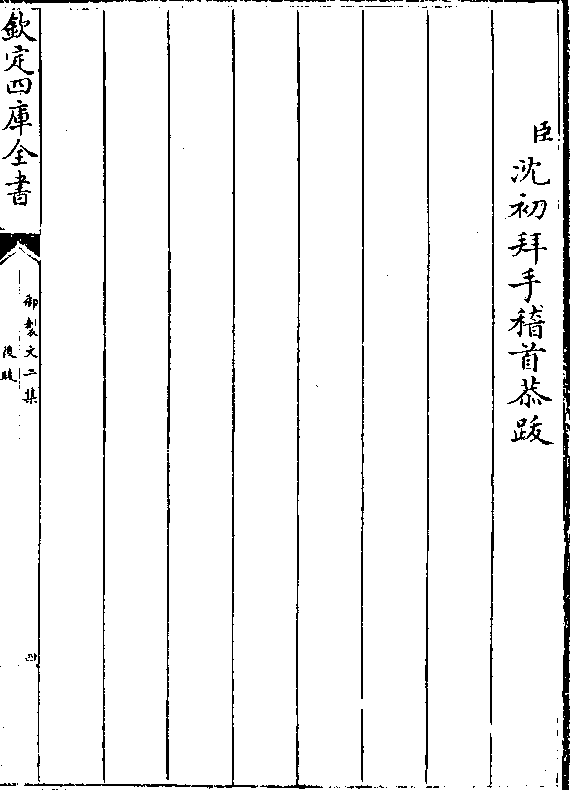 臣沈初拜手稽首恭跋
欽定四庫全書
御製文二集
後跋
四